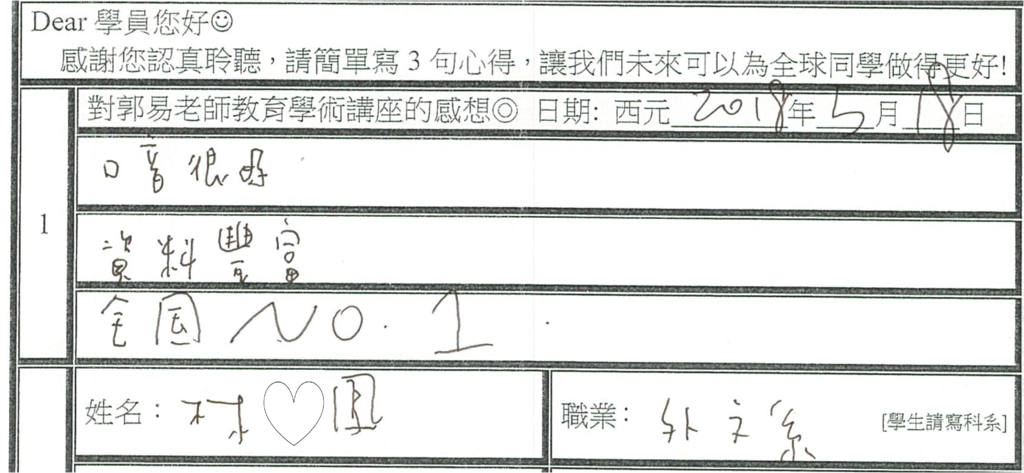 Dear 學員您好☺
感謝您認真聆聽，請簡單寫 3 句心得，讓我們未來可以為全球同學做得更好!
1
對郭易老師教育學術講座的感想◎ 日期: 西元 2018 年 5 月 18 日
口音很好
資料豐富
全国 NO. 1.
姓名： 林♡鳳
職業： 外文系 [學生請寫科系]